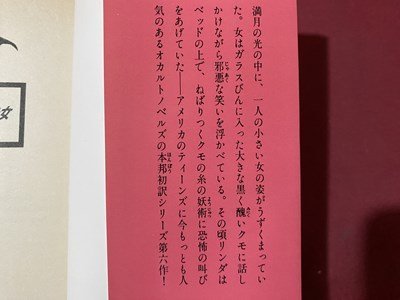 満月の光の中に、一人の小さい女の姿がうずくまってい
た。女はガラスびんに入った大きな黒く醜いクモに話し
かけながら邪悪な笑いを浮かべている。その頃リンダは
ベッドの上で、ねばりつくクモの糸の妖術に恐怖の叫び
をあげていた――アメリカのティーンズに今もっとも人
気のあるオカルトノベルズの本邦初訳シリーズ第六作！
女